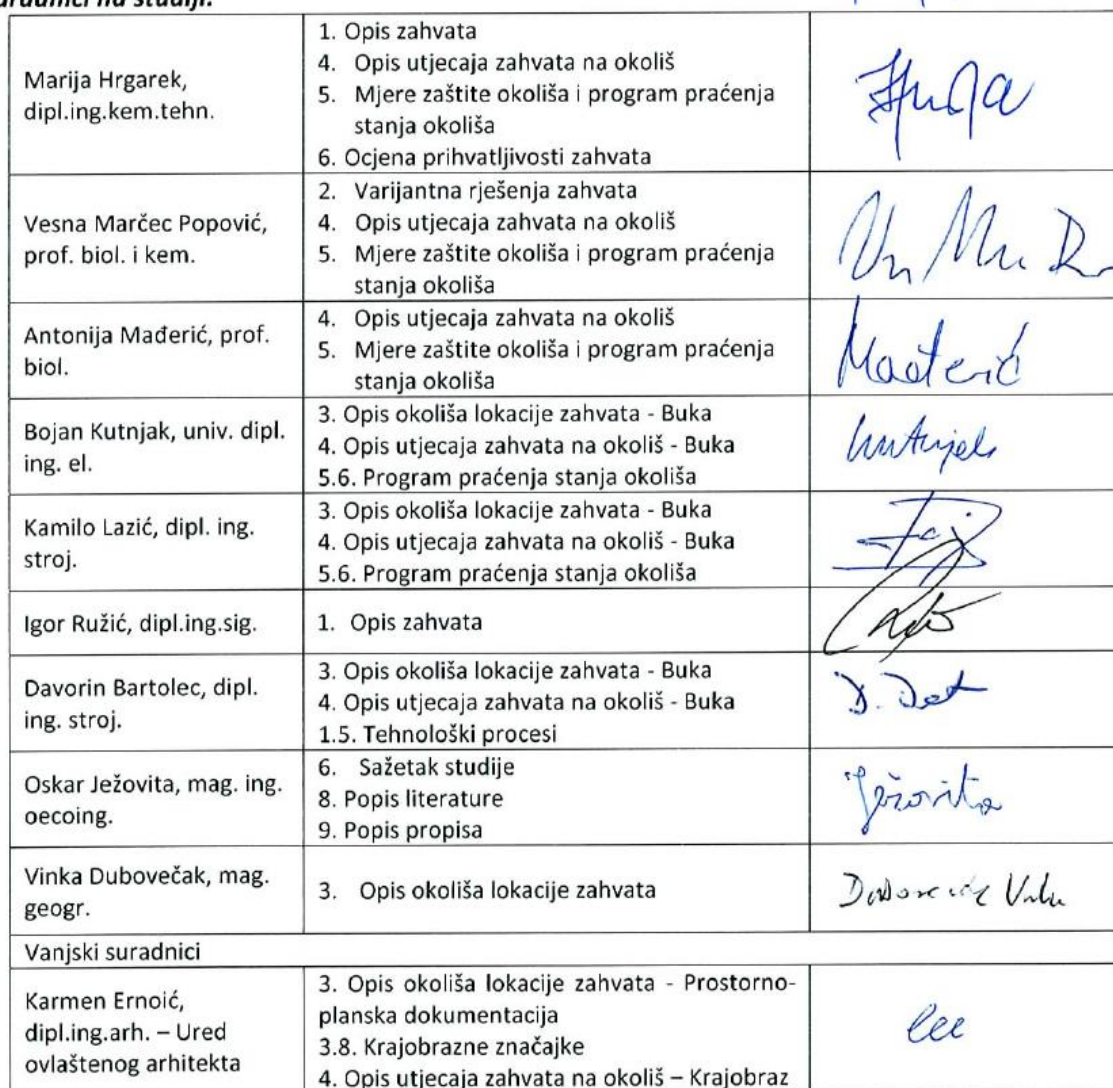 uradnici na studiji:
Marija Hrgarek,
dipl.ing.kem.tehn.
1. Opis zahvata
4. Opis utjecaja zahvata na okoliš
5. Mjere zaštite okoliša i program praćenja
stanja okoliša
6. Ocjena prihvatljivosti zahvata
Vesna Marčec Popović,
prof. biol. i kem.
2. Varijantna rješenja zahvata
4. Opis utjecaja zahvata na okoliš
5. Mjere zaštite okoliša i program praćenja
stanja okoliša
Antonija Mađerić, prof.
biol.
4. Opis utjecaja zahvata na okoliš
5. Mjere zaštite okoliša i program praćenja
stanja okoliša
Mađerić
Bojan Kutnjak, univ. dipl.
ing. el.
3. Opis okoliša lokacije zahvata - Buka
4. Opis utjecaja zahvata na okoliš - Buka
5.6. Program praćenja stanja okoliša
Kamilo Lazić, dipl. ing.
stroj.
3. Opis okoliša lokacije zahvata - Buka
4. Opis utjecaja zahvata na okoliš - Buka
5.6. Program praćenja stanja okoliša
Igor Ružić, dipl.ing.sig.
1. Opis zahvata
Davorin Bartolec, dipl.
ing. stroj.
3. Opis okoliša lokacije zahvata - Buka
4. Opis utjecaja zahvata na okoliš - Buka
1.5. Tehnološki procesi
Oskar Ježovita, mag. ing.
oecoing.
6. Sažetak studije
8. Popis literature
9. Popis propisa
Ježovita
Vinka Dubovečak, mag.
geogr.
3. Opis okoliša lokacije zahvata
Vanjski suradnici
Karmen Ernoić,
dipl.ing.arh. – Ured
ovlaštenog arhitekta
3. Opis okoliša lokacije zahvata - Prostorno-
planska dokumentacija
3.8. Krajobrazne značajke
4. Opis utjecaja zahvata na okoliš – Krajobraz